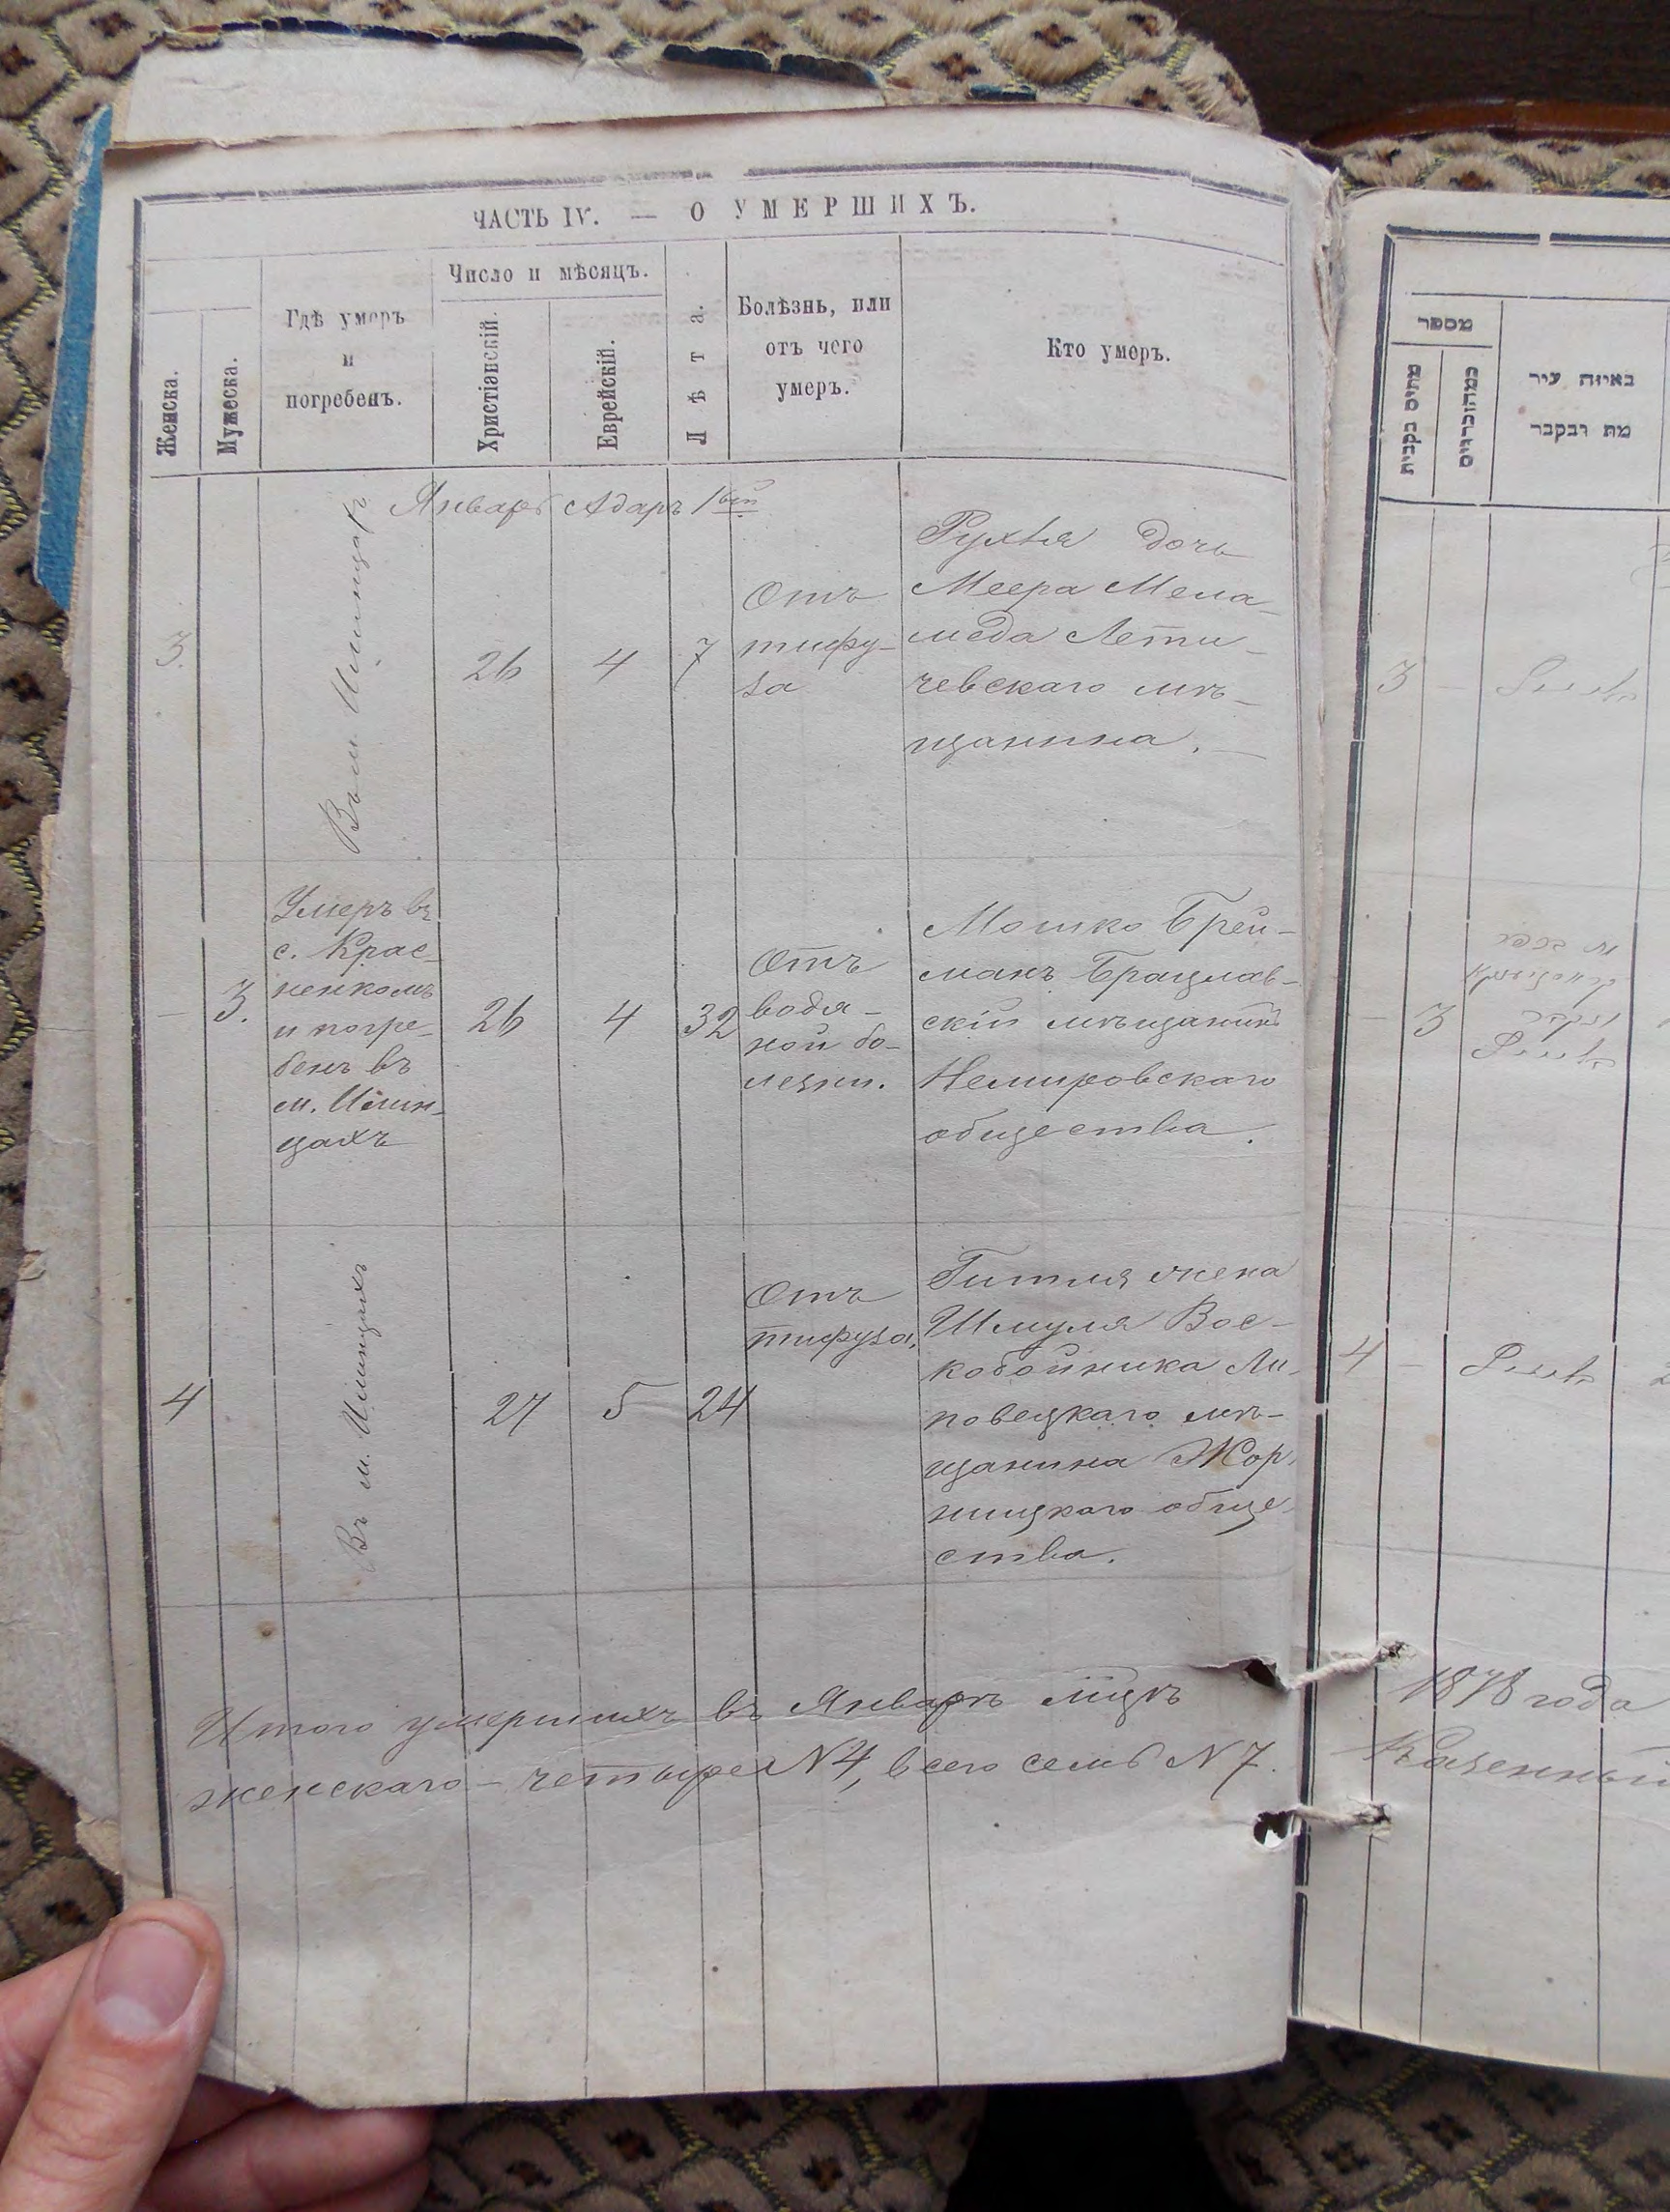 ЧАСТЬ IV. — О УМЕРШИХЪ.
Женска.
Мужеска.
Гдѣ умеръ
и
погребенъ.
Число и мѣсяцъ.
Христіанскій.
Еврейскій.
Лѣта.
Болѣзнь, или
отъ чего
умеръ.
Кто умеръ.
Январь Адаръ 1ый
3.
Въ м. Илинцахъ
26
4
7
Отъ
тифу-
за
Рухля дочь
Меера Мела-
меда Лети-
чевскаго мѣ-
щанина.
—
3.
Умеръ въ
с. Крас-
ненкомъ
и погре-
бенъ въ
м. Илин-
цахъ
26
4
32
Отъ
водя-
ной бо-
лезни.
Мошко Брей-
манъ Брацлав-
скій мѣщанинъ
Немировскаго
общества.
4
Въ м. Илинцахъ
27
5
24
Отъ
тифуза.
Гитля жена
Шмуля Вос-
кобойника Ли-
повецкаго мѣ-
щанина Жор-
нищкаго обще-
ства.
Итого умершихъ въ Январѣ мцѣ
женскаго – четыре N 4, всего семь N 7.
מספר
באיזה עיר
מת ונקבר
3 —
— 3
4 —
1878 года
Казенный